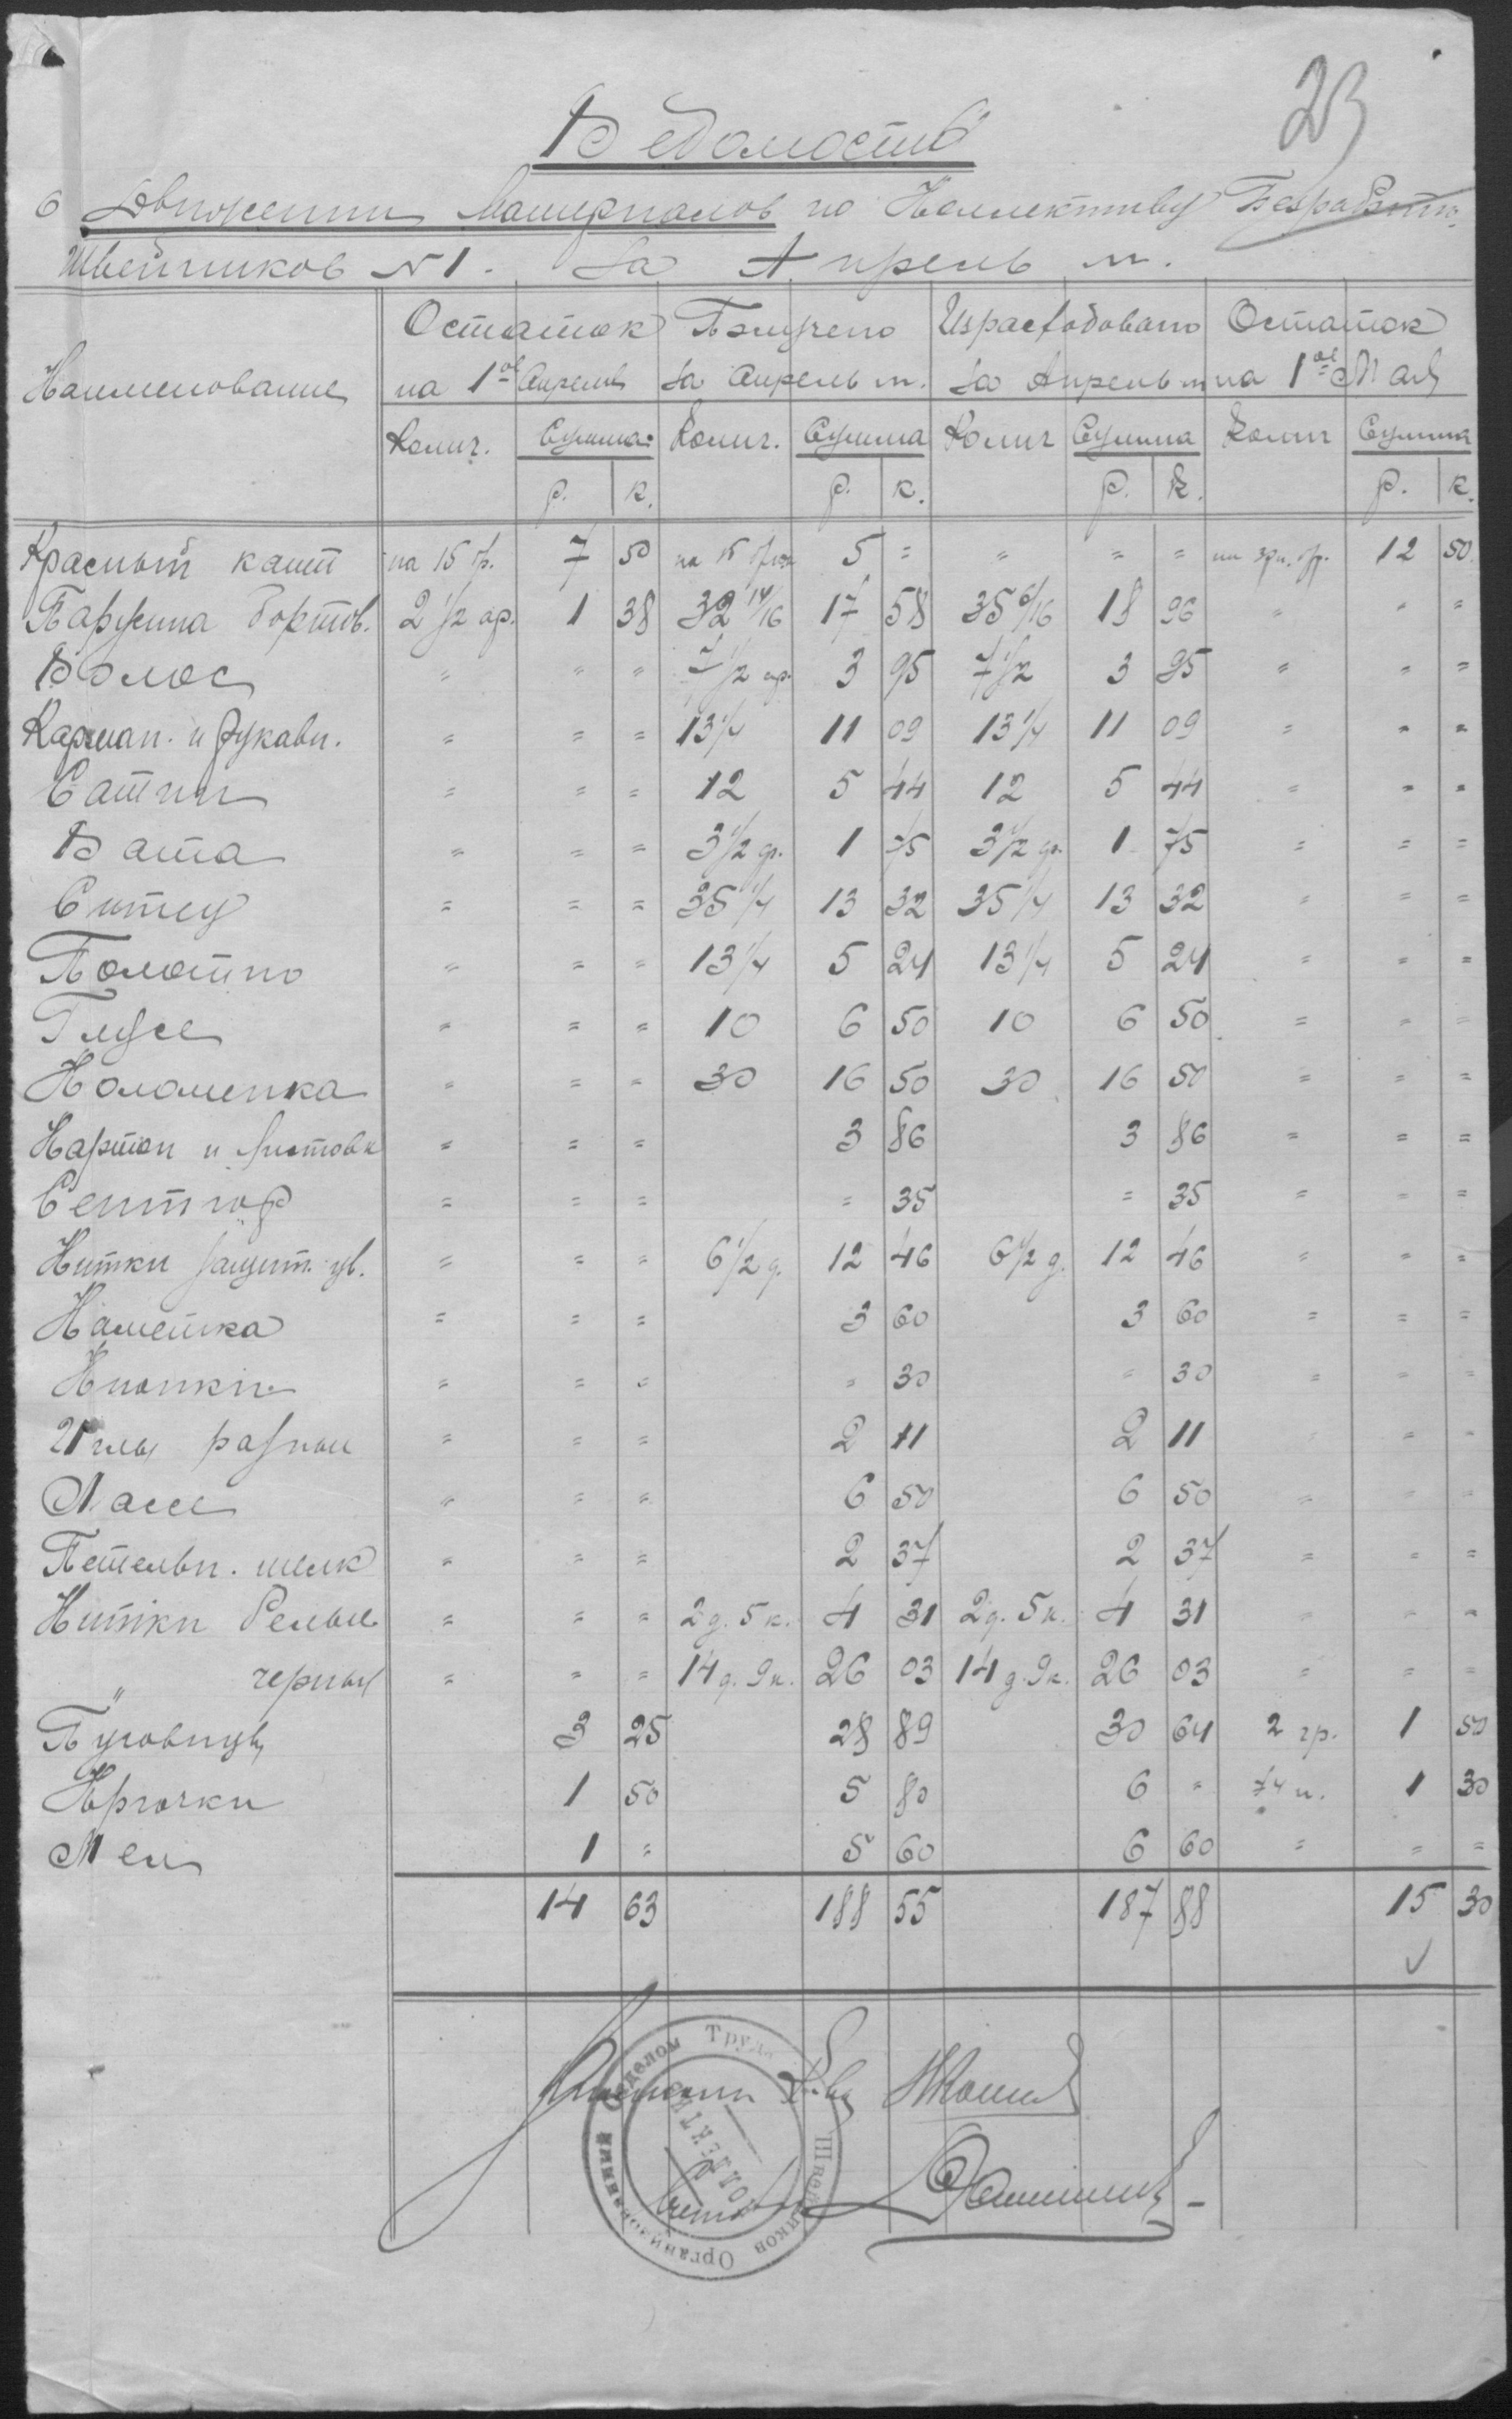 23
Ведомость
о Движении Материалов по Коллективу Безработн.
Швейников N 1. За Апрель м.
Наименование Остаток на 1ое Апреля Получено за Апрель м. Израсходовано за Апрель м. Остаток на 1ое Мая
Колич. Сумма Колич. Сумма Колич Сумма Колич Сумма
р. к. р. к. р. к. р. к.
Красный кант на 15 бр. 7 50 на 15 5 = = = = бр. 12 50
Парусина бортов. 2 1/2 ар. 1 38 32 14/16 17 58 35 6/16 18 96 " " =
Волос " " " 7 1/2 ар. 3 95 7 1/2 3 95 = = =
Карман. и рукавн. = = = 13 1/4 11 09 13 1/4 11 09 = = =
Сатин = = = 12 5 44 12 5 44 = = =
Вата = = = 3 1/2 ф. 1 75 3 1/2 ф. 1 75 = = =
Ситец = = = 35 1/4 13 32 35 1/4 13 32 = = =
Полотно = = = 13 1/4 5 24 13 1/4 5 24 = = =
= = = 10 6 50 10 6 50 = = =
Коломенка = = = 30 16 50 30 16 50 = = =
Картон и листовк = = = 3 86 3 86 = = =
= = = = 35 = 35 = = =
Нитки защит. цв. = = = 6 1/2 д. 12 46 6 1/2 д. 12 46 = = =
Наметка = = = 3 60 3 60 = = =
Кнопки = = = = 30 = 30 = = =
Иглы разные = = = 2 11 2 11 = =
= = = 6 50 6 50 = = =
Петельн. шелк = = = 2 37 2 37 = = =
Нитки белые = = = 2 д. 5 к. 4 31 2 д. 5 к. 4 31 = = =
" черные = = = 14 д. 9 к. 26 03 14 д. 9 к. 26 03 = = =
Пуговицы 3 25 28 89 30 64 2 гр. 1 50
Крючки 1 50 5 80 6 = 1 30
Мел 1 = 5 60 6 60 = = =
14 63 188 55 187 88 15 30
Отделом Труда
Швейников
Организованный
КОЛЛЕКТИВ